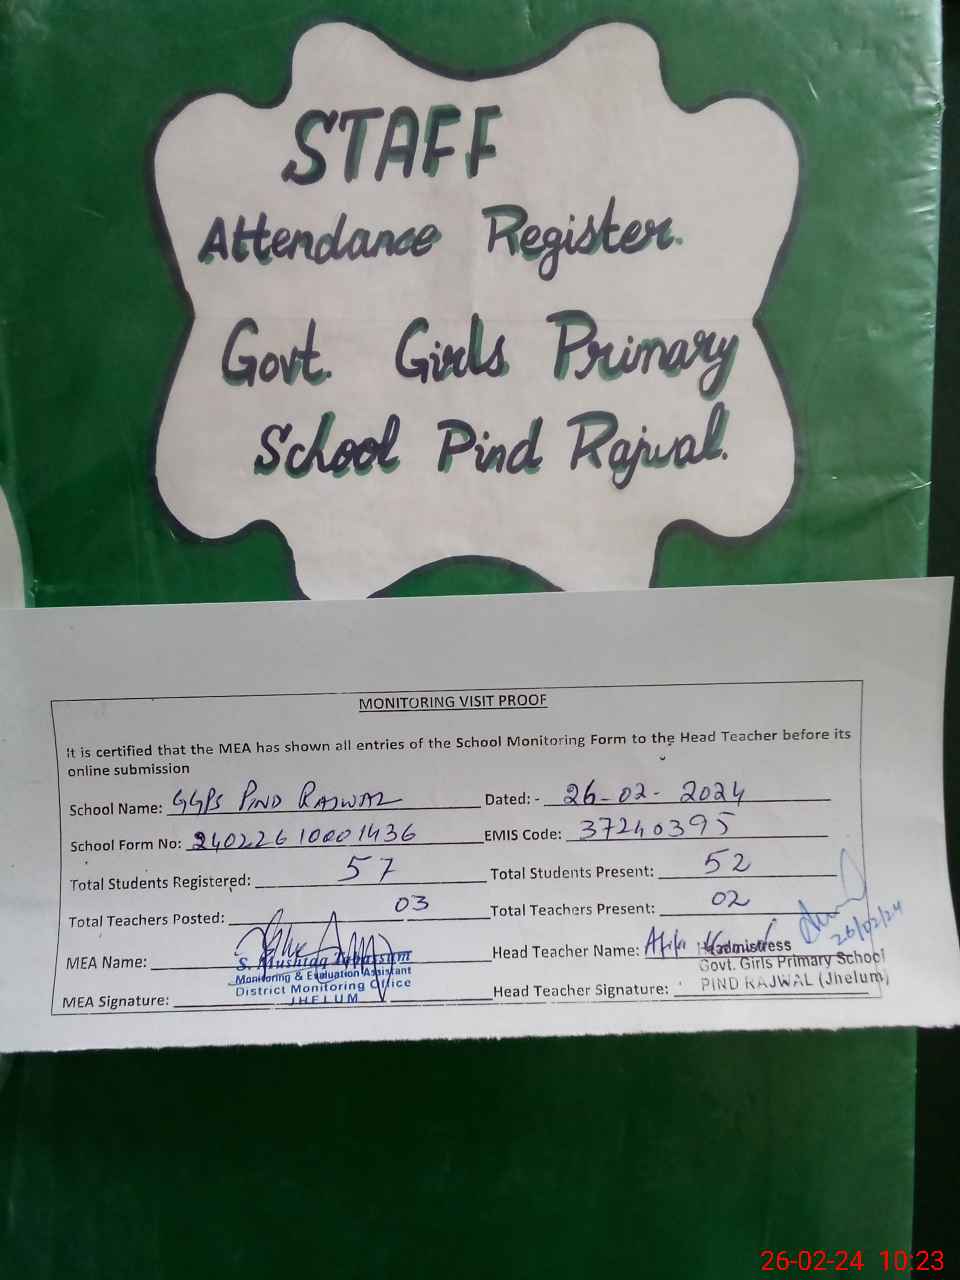 STAFF
Attendance Register.
Govt. Girls Primary
School Pind Rajwal.
MONITORING VISIT PROOF
It is certified that the MEA has shown all entries of the School Monitoring Form to the Head Teacher before its
online submission
School Name: GGPS PIND RAJWAL Dated: - 26-02-2024
School Form No: 24022610001436 EMIS Code: 37240395
Total Students Registered: 57 Total Students Present: 52
Total Teachers Posted: 03 Total Teachers Present: 02
26/02/24
MEA Name: Head Teacher Name:
S. Mushtaq Tabassum
Monitoring & Evaluation Assistant
District Monitoring Office
JHELUM
Headmistress
Govt. Girls Primary School
PIND RAJWAL (Jhelum)
MEA Signature: Head Teacher Signature:
26-02-24 10:23